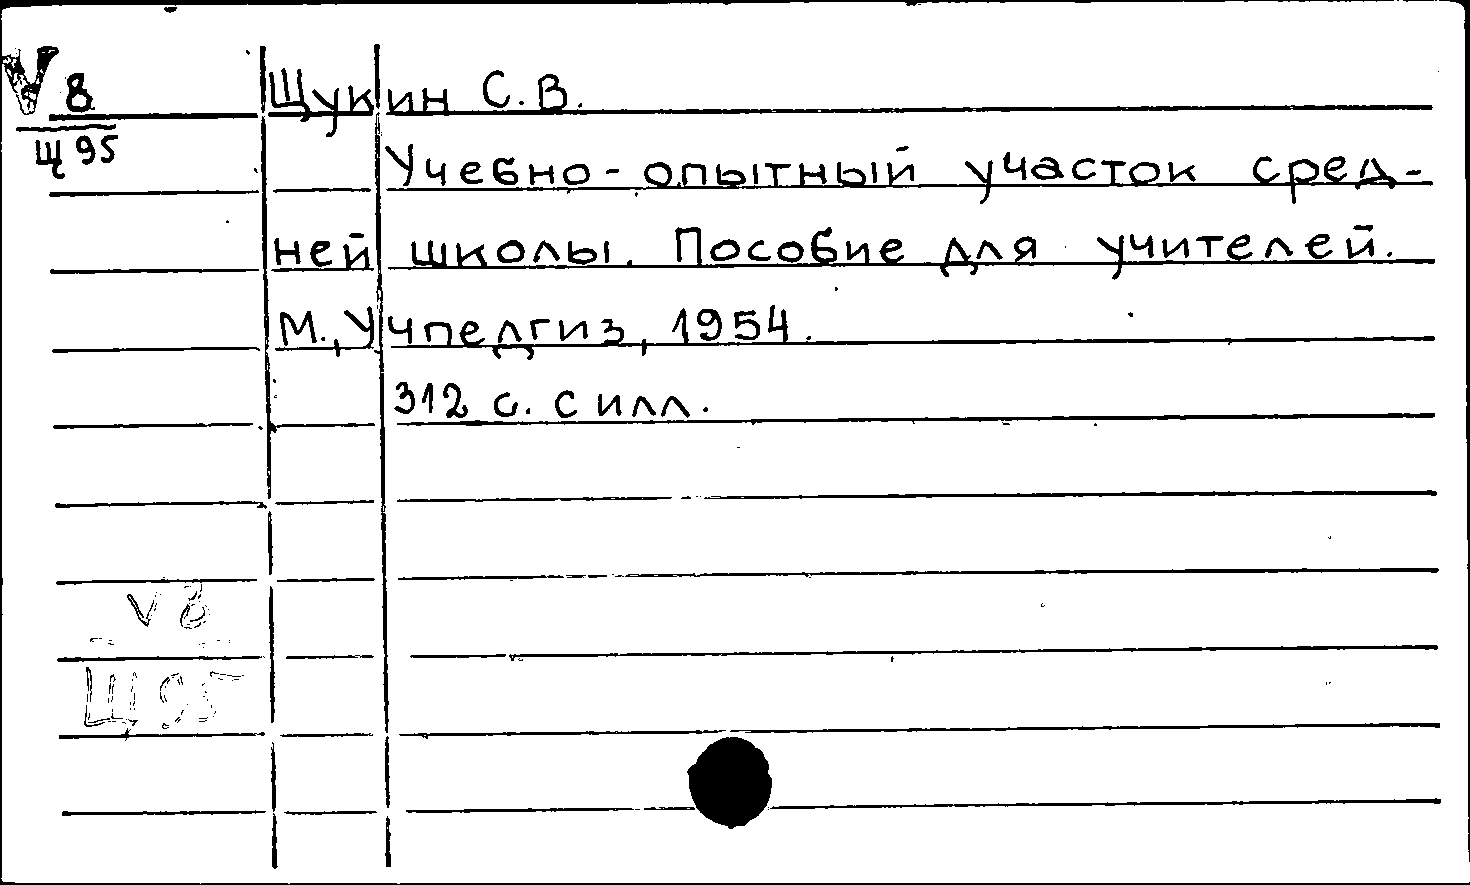 V 8
Щ 95
Щукин С.В.
Учебно-опытный участок сред-
ней школы. Пособие для учителей.
М., Учпедгиз, 1954.
312 с. с илл.
V 8
Щ 95